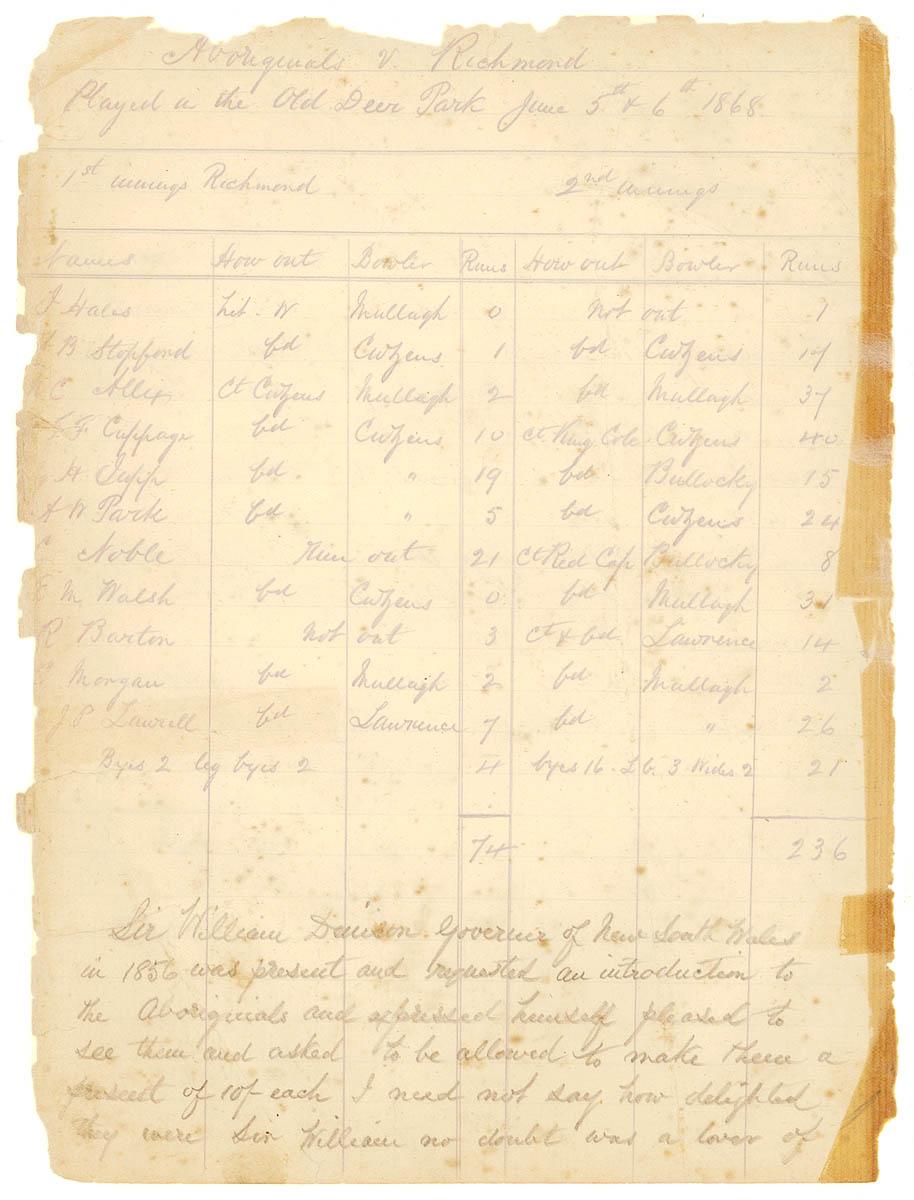 Aboriginals v. Richmond
Played in the Old Deer Park June 5th & 6th 1868
1st innings Richmond 2nd innings
Names How out Bowler Runs How out Bowler Runs
Hales hit-W Mullagh 0 Not out 1
B Stopford bd Cuzens 1 bd Cuzens 17
C Allix Ct Cuzens Mullagh 2 bd Mullagh 37
F Cuppage bd Cuzens 10 ct King Cole Cuzens 40
H Jupp bd " 19 bd Bullocky 15
A W Park bd " 5 bd Cuzens 24
Noble Run out 21 Ct Red Cap Bullocky 8
E M Walsh bd Cuzens 0 bd Mullagh 31
R Barton Not out 3 ct & bd Lawrence 14
Morgan bd Mullagh 2 bd Mullagh 2
J P Lawrell bd Lawrence 7 bd " 26
Byes 2 leg byes 2 4 byes 16 - L b. 3 Wides 2 21
74 236
Sir William Denison Governer of New South Wales
in 1856 was present and requested an introduction to
the Aboriginals and expressed himself pleased to
see them and asked to be allowed to make them a
present of 10/- each I need not say how delighted
they were Sir William no doubt was a lover of